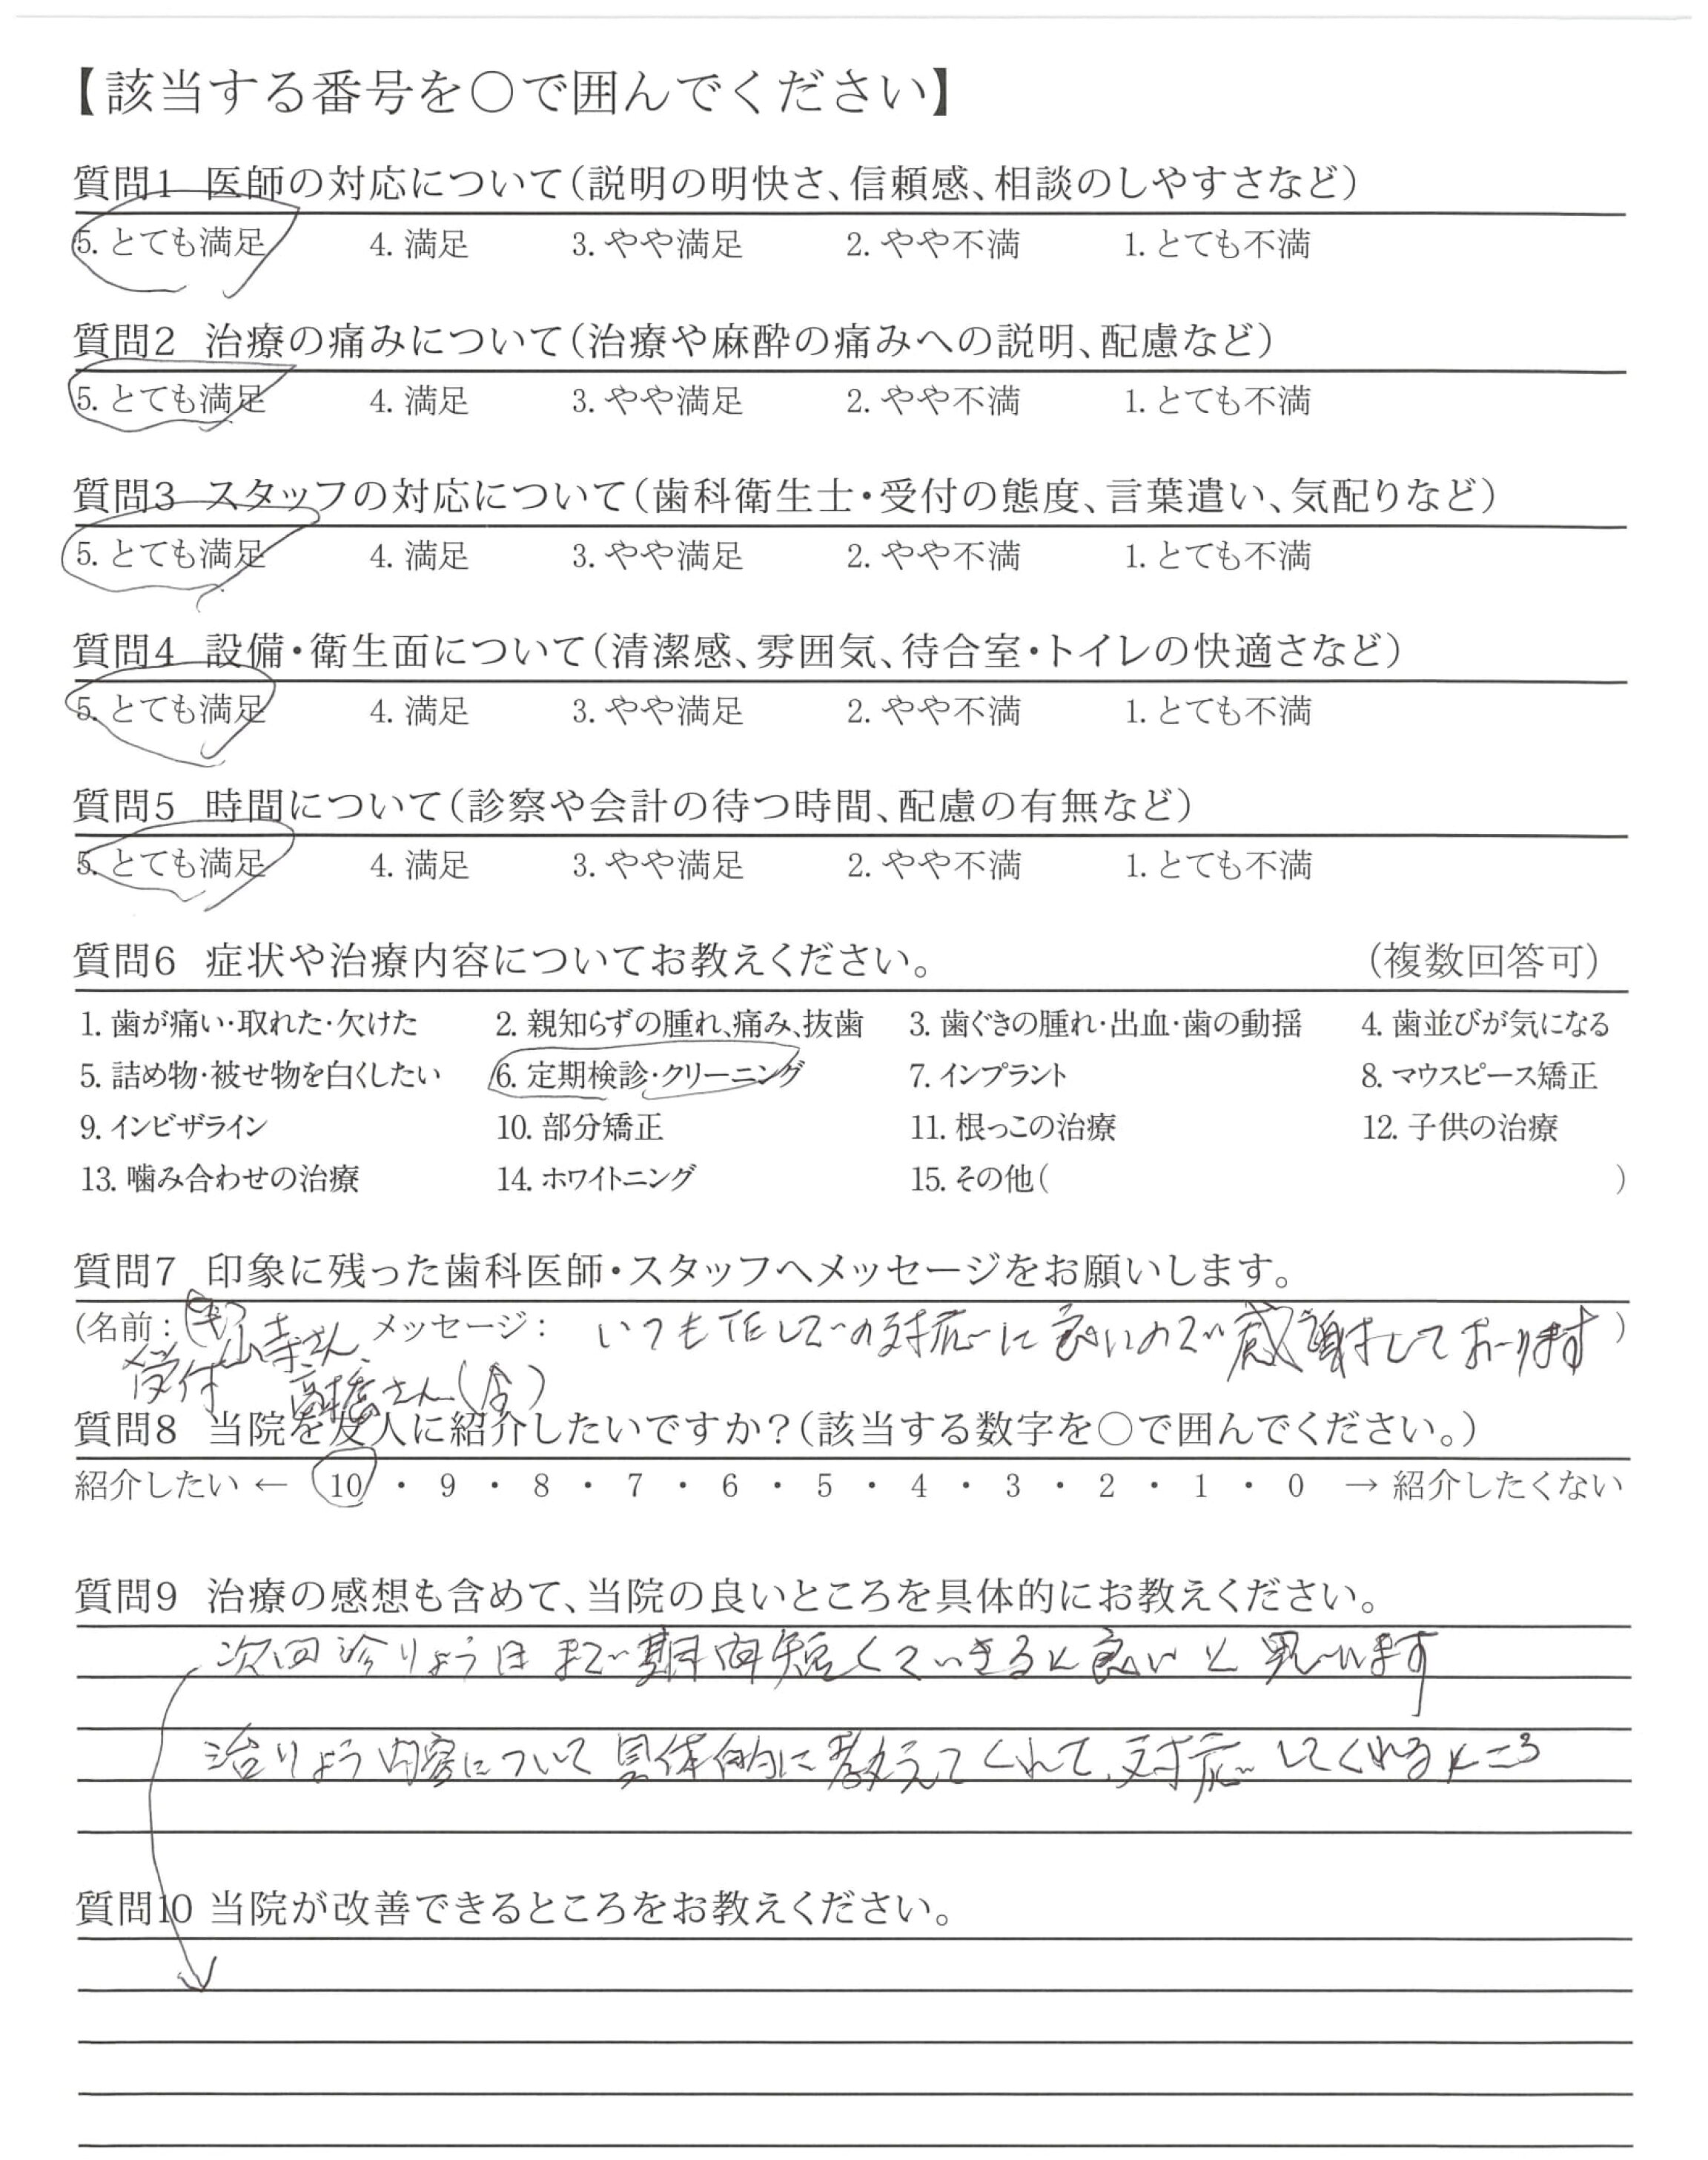 【該当する番号を○で囲んでください】
質問1 医師の対応について(説明の明快さ、信頼感、相談のしやすさなど)
5. とても満足 4. 満足 3. やや満足 2. やや不満 1. とても不満
質問2 治療の痛みについて(治療や麻酔の痛みへの説明、配慮など)
5. とても満足 4. 満足 3. やや満足 2. やや不満 1. とても不満
質問3 スタッフの対応について(歯科衛生士・受付の態度、言葉遣い、気配りなど)
5. とても満足 4. 満足 3. やや満足 2. やや不満 1. とても不満
質問4 設備・衛生面について(清潔感、雰囲気、待合室・トイレの快適さなど)
5. とても満足 4. 満足 3. やや満足 2. やや不満 1. とても不満
質問5 時間について(診察や会計の待つ時間、配慮の有無など)
5. とても満足 4. 満足 3. やや満足 2. やや不満 1. とても不満
質問6 症状や治療内容についてお教えください。 (複数回答可)
1. 歯が痛い・取れた・欠けた 2. 親知らずの腫れ、痛み、抜歯 3. 歯ぐきの腫れ・出血・歯の動揺 4. 歯並びが気になる
5. 詰め物・被せ物を白くしたい 6. 定期検診・クリーニング 7. インプラント 8. マウスピース矯正
9. インビザライン 10. 部分矯正 11. 根っこの治療 12. 子供の治療
13. 噛み合わせの治療 14. ホワイトニング 15. その他( )
質問7 印象に残った歯科医師・スタッフへメッセージをお願いします。
(名前: 小寺さん メッセージ: いつも 対応に良いので感謝しております)
受付 高橋さん
質問8 当院を友人に紹介したいですか?(該当する数字を○で囲んでください。)
紹介したい ← 10 ・ 9 ・ 8 ・ 7 ・ 6 ・ 5 ・ 4 ・ 3 ・ 2 ・ 1 ・ 0 → 紹介したくない
質問9 治療の感想も含めて、当院の良いところを具体的にお教えください。
次回診りょう日まで期間短くできると良いと思います
治りょう内容について具体的に教えてくれて、対応してくれるところ
質問10 当院が改善できるところをお教えください。